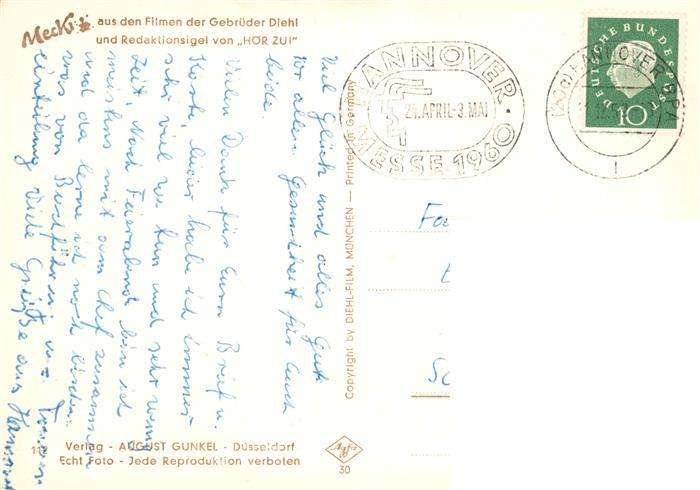 Mecki
aus den Filmen der Gebrüder Diehl
und Redaktionsigel von „HÖR ZU!"
Viel Glück und alles Gute
vor allem Gesundheit für Euch
beide.
Vielen Dank für Euern Brief u.
Karte, leider habe ich immer
sehr viel zu tun und sehr wenig
Zeit. Nach Feierabend bin ich
meistens mit dem Chef zusammen
und da lerne ich noch bischen
was von Buchführung
einteilung Viele Grüße aus Hannover
Copyright by DIEHL-FILM, MÜNCHEN — Printed in Germany
HANNOVER
24. APRIL-3. MAI
MESSE 1960
HANNOVER
DEUTSCHE BUNDESPOST
10
Fa
Sc
11
Verlag - AUGUST GUNKEL - Düsseldorf
Echt Foto - Jede Reproduktion verboten
Agfa
30